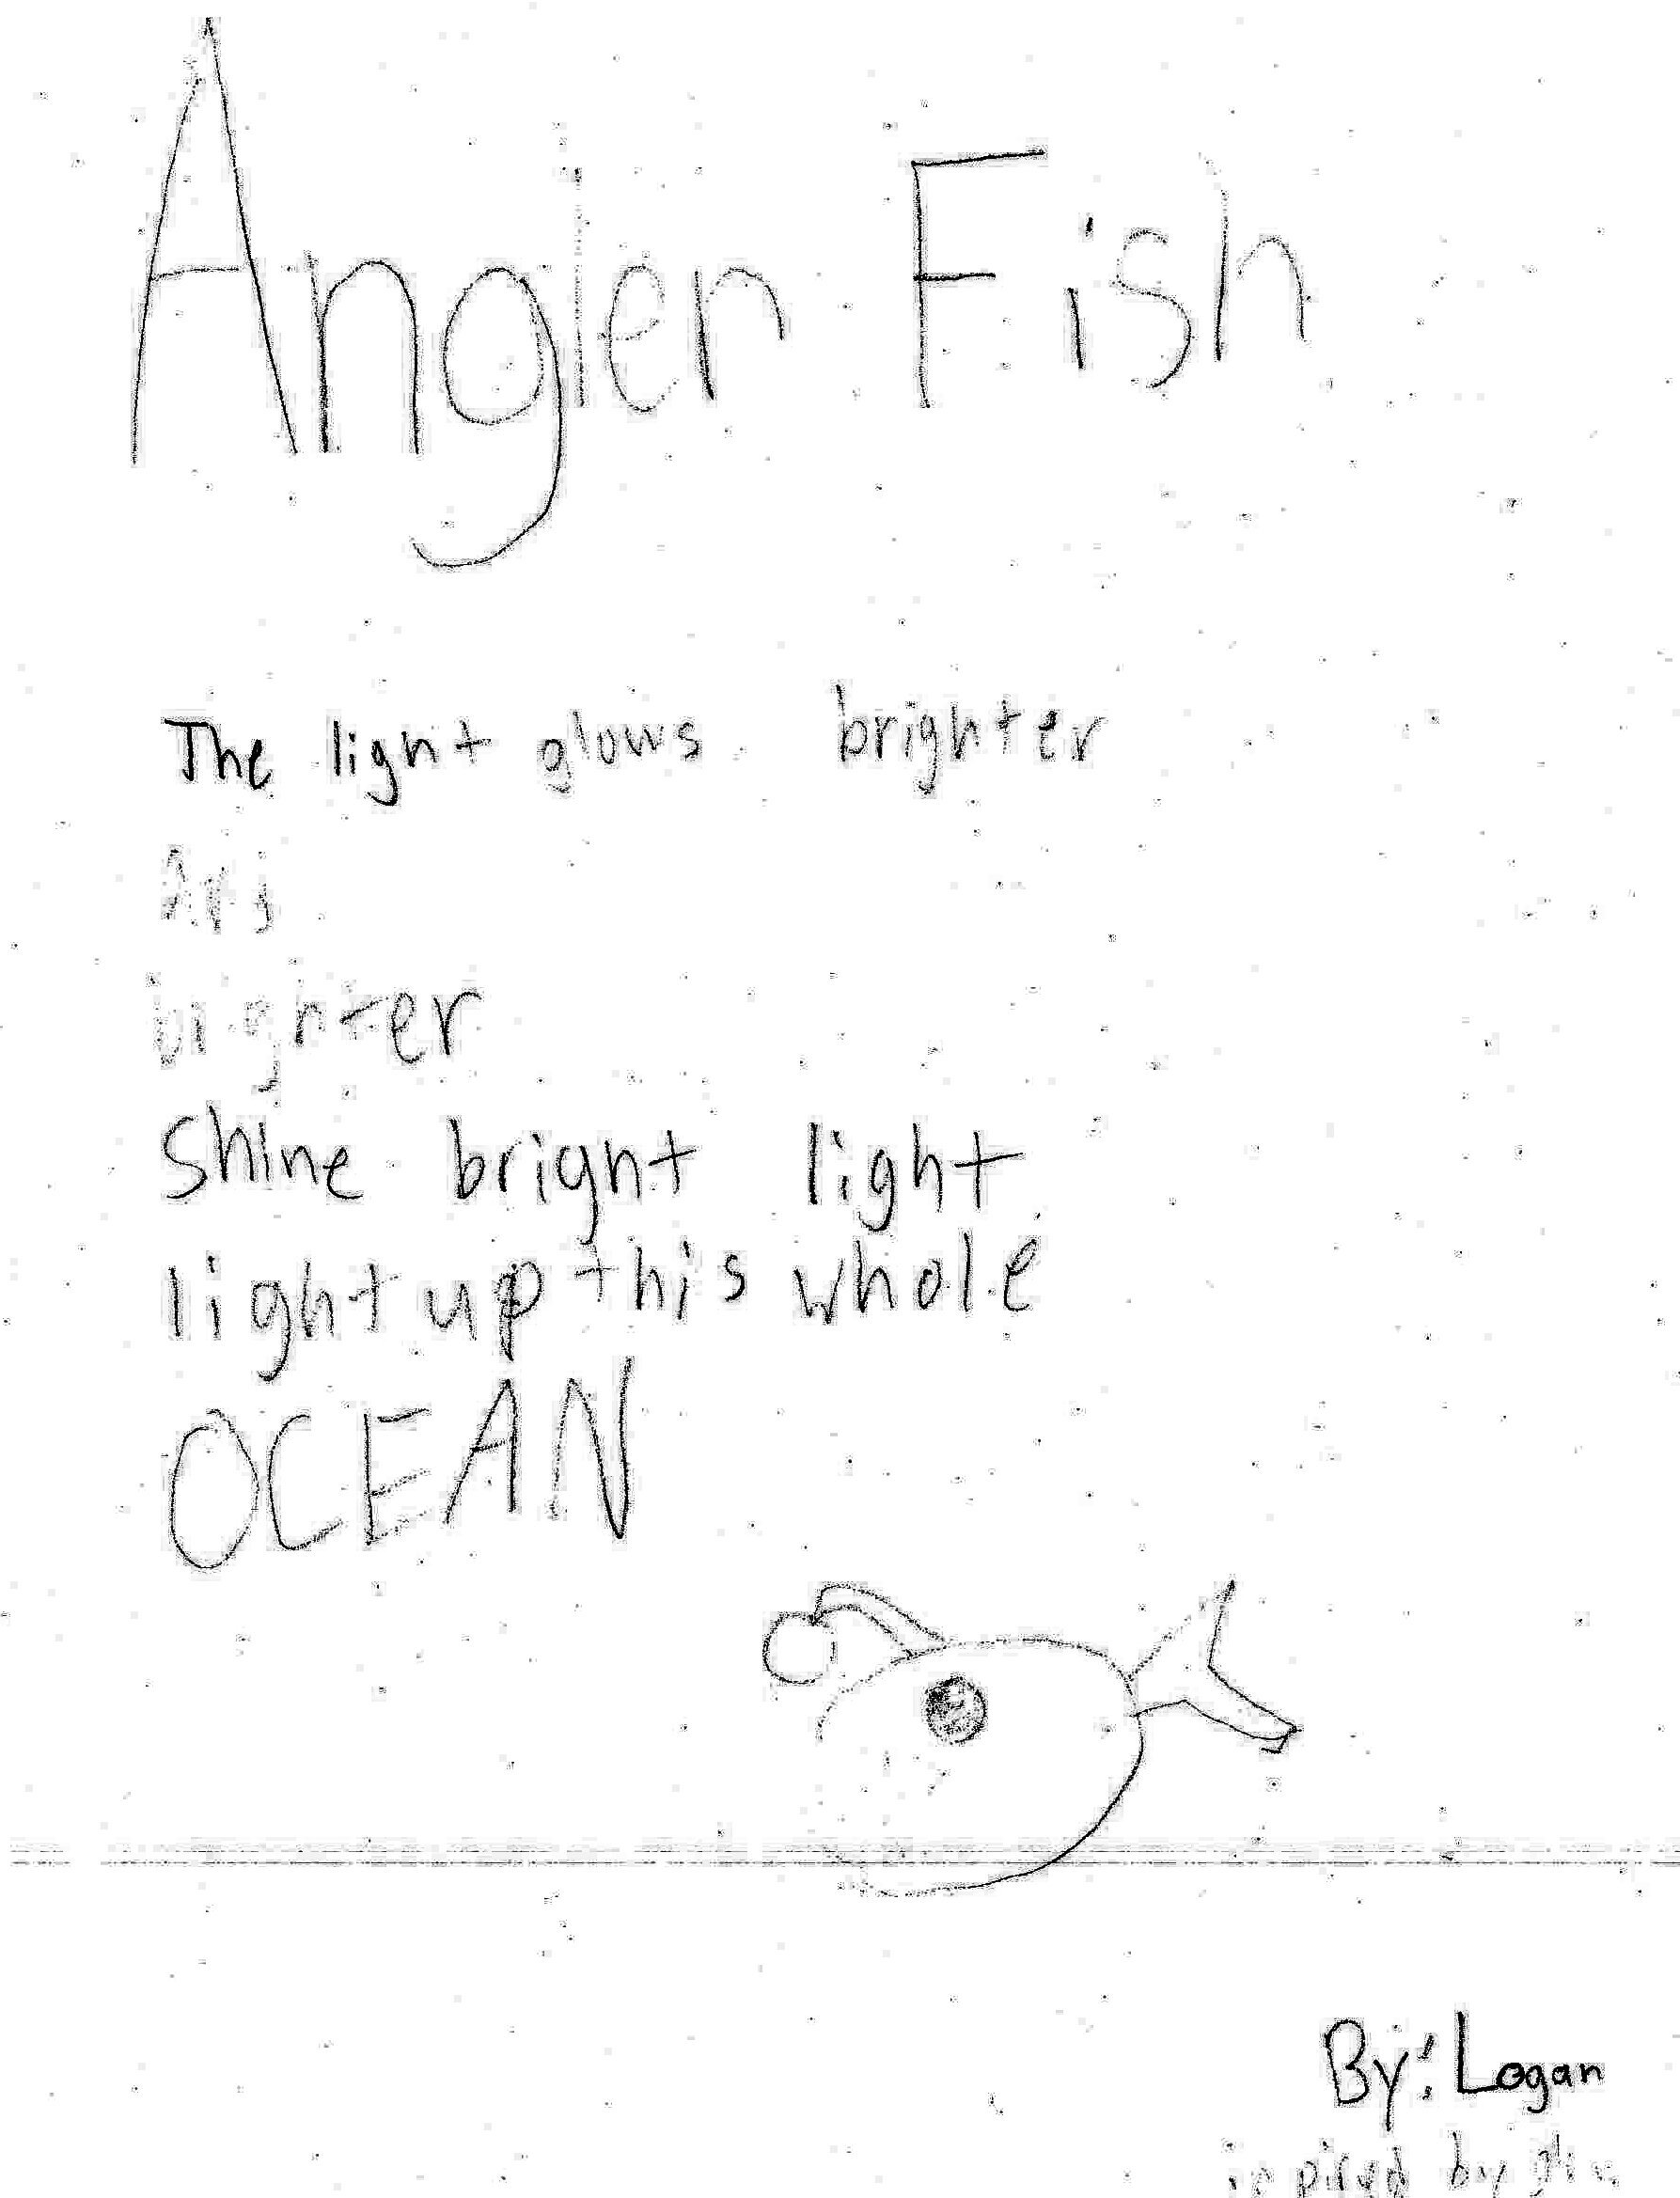 Angler Fish
The light glows brighter
And
brighter
Shine bright light
light up this whole
OCEAN
By: Logan
inspired by